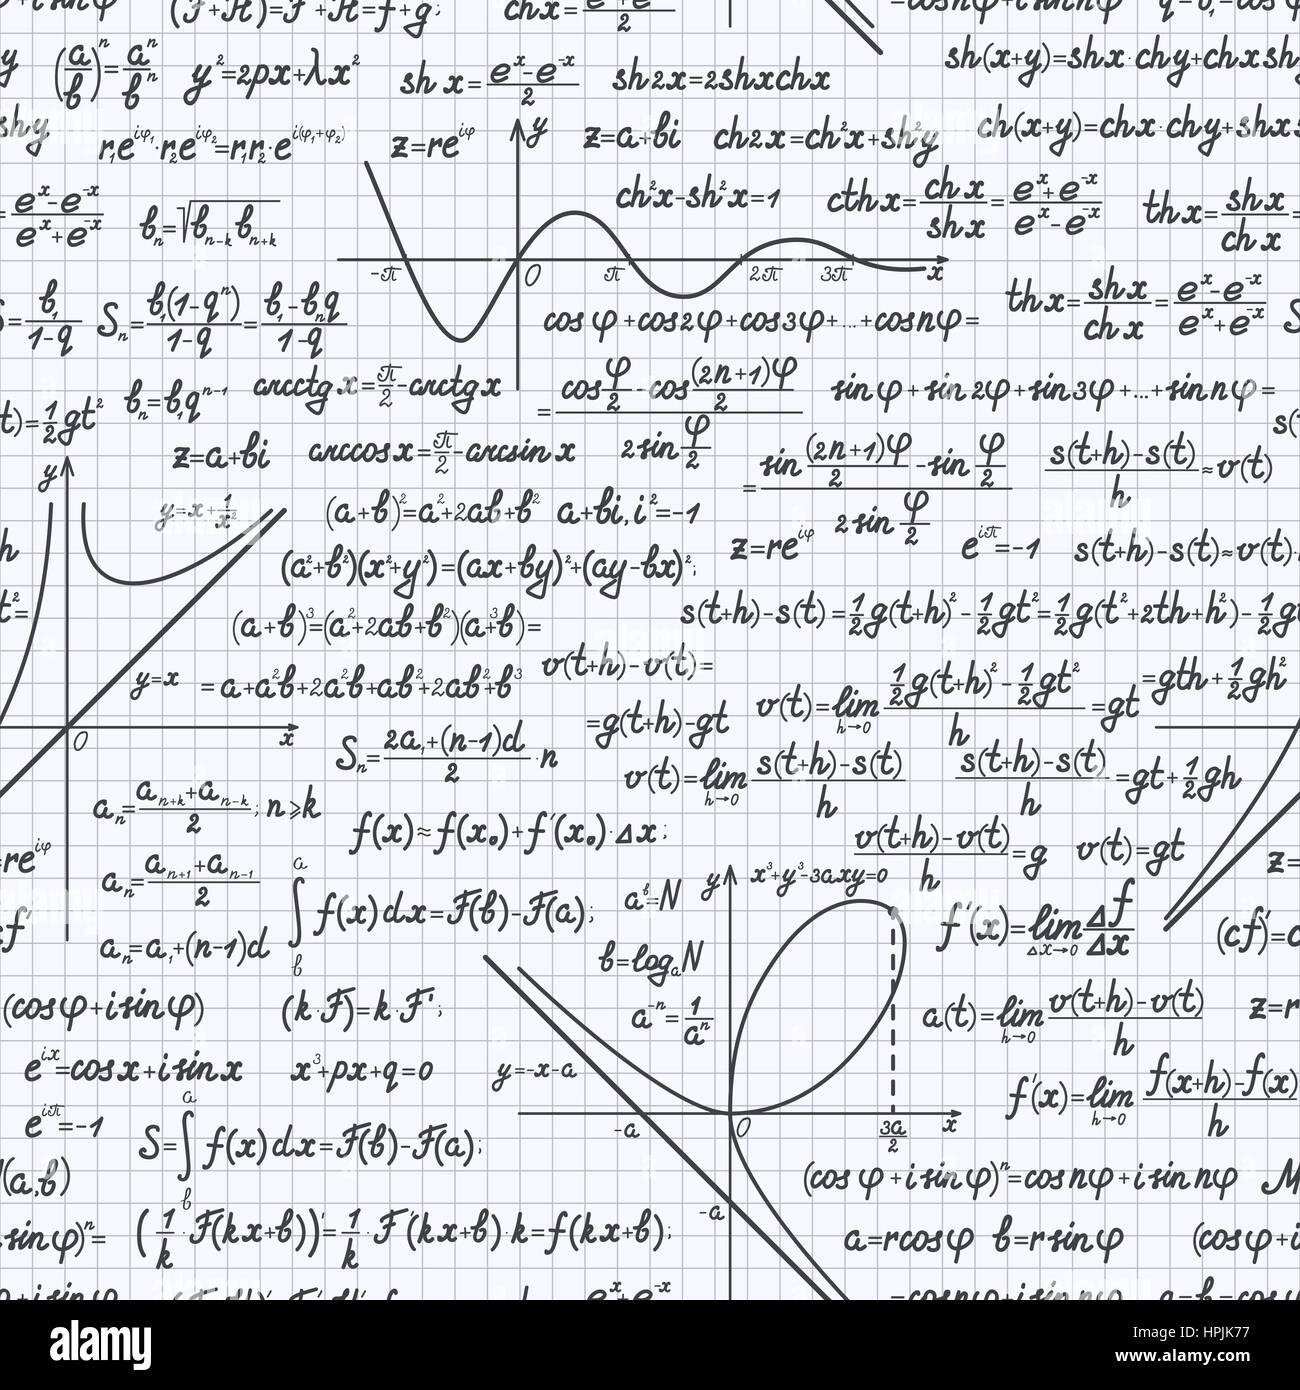 (a/b)ⁿ=aⁿ/bⁿ
y²=2px+λx²
sh x=(eˣ-e⁻ˣ)/2
sh2x=2shxchx
sh(x+y)=shx·chy+chx·sh
r₁e^(iφ₁)·r₂e^(iφ₂)=r₁r₂·e^(i(φ₁+φ₂))
z=re^(iφ)
y
z=a+bi
ch2x=ch²x+sh²y
ch(x+y)=chx·chy+shx
=(eˣ-e⁻ˣ)/(eˣ+e⁻ˣ)
bₙ=√(bₙ₋ₖbₙ₊ₖ)
ch²x-sh²x=1
cthx=chx/shx=(eˣ+e⁻ˣ)/(eˣ-e⁻ˣ)
thx=shx/chx=
-π 0 π 2π 3π x
=b₁/(1-q)
Sₙ=b₁(1-qⁿ)/(1-q)=(b₁-bₙq)/(1-q)
cosφ+cos2φ+cos3φ+...+cosnφ=
thx=shx/chx=(eˣ-e⁻ˣ)/(eˣ+e⁻ˣ)
(t)=½gt²
bₙ=b₁qⁿ⁻¹
arcctgx=π/2-arctgx
=(cos φ/2-cos (2n+1)φ/2)/(2sin φ/2)
sinφ+sin2φ+sin3φ+...+sinnφ=
z=a+bi
arccosx=π/2-arcsinx
=(sin (2n+1)φ/2-sin φ/2)/(2sin φ/2)
(s(t+h)-s(t))/h≈v(t)
y
y=x+1/x²
(a+b)²=a²+2ab+b²
a+bi, i²=-1
z=re^(iφ)
e^(iπ)=-1
s(t+h)-s(t)≈v(t)·
(a²+b²)(x²+y²)=(ax+by)²+(ay-bx)²;
(a+b)³=(a²+2ab+b²)(a+b)=
s(t+h)-s(t)=½g(t+h)²-½gt²=½g(t²+2th+h²)-½g
y=x
=a³+a²b+2a²b+ab²+2ab²+b³
v(t+h)-v(t)=
=g(t+h)-gt
v(t)=lim h→0 (½g(t+h)²-½gt²)/h=gt
=gth+½gh²
0 x
Sₙ=(2a₁+(n-1)d)/2·n
v(t)=lim h→0 (s(t+h)-s(t))/h
(s(t+h)-s(t))/h=gt+½gh
aₙ=(aₙ₊ₖ+aₙ₋ₖ)/2; n≥k
f(x)≈f(x₀)+f'(x₀)·Δx;
(v(t+h)-v(t))/h=g
v(t)=gt
re^(iφ)
aₙ=(aₙ₊₁+aₙ₋₁)/2
a ∫ b f(x)dx=F(b)-F(a);
aᵇ=N
y
x³+y³-3axy=0
f'(x)=lim Δx→0 Δf/Δx
(cf)'=c
aₙ=a₁+(n-1)d
b=logₐN
(cosφ+isinφ)
(k·F)'=k·F';
a⁻ⁿ=1/aⁿ
a(t)=lim h→0 (v(t+h)-v(t))/h
z=r
e^(ix)=cosx+isinx
x³+px+q=0
y=-x-a
f'(x)=lim h→0 (f(x+h)-f(x))/h
e^(iπ)=-1
S= a ∫ b f(x)dx=F(b)-F(a);
-a 0 3a/2 x
(a,b)
(cosφ+isinφ)ⁿ=cosnφ+isinnφ
-a
sinφ)ⁿ=
(1/k·F(kx+b))'=1/k·F'(kx+b)·k=f(kx+b);
a=rcosφ b=rsinφ
(cosφ+i
alamy
Image ID: HPJK77
www.alamy.com